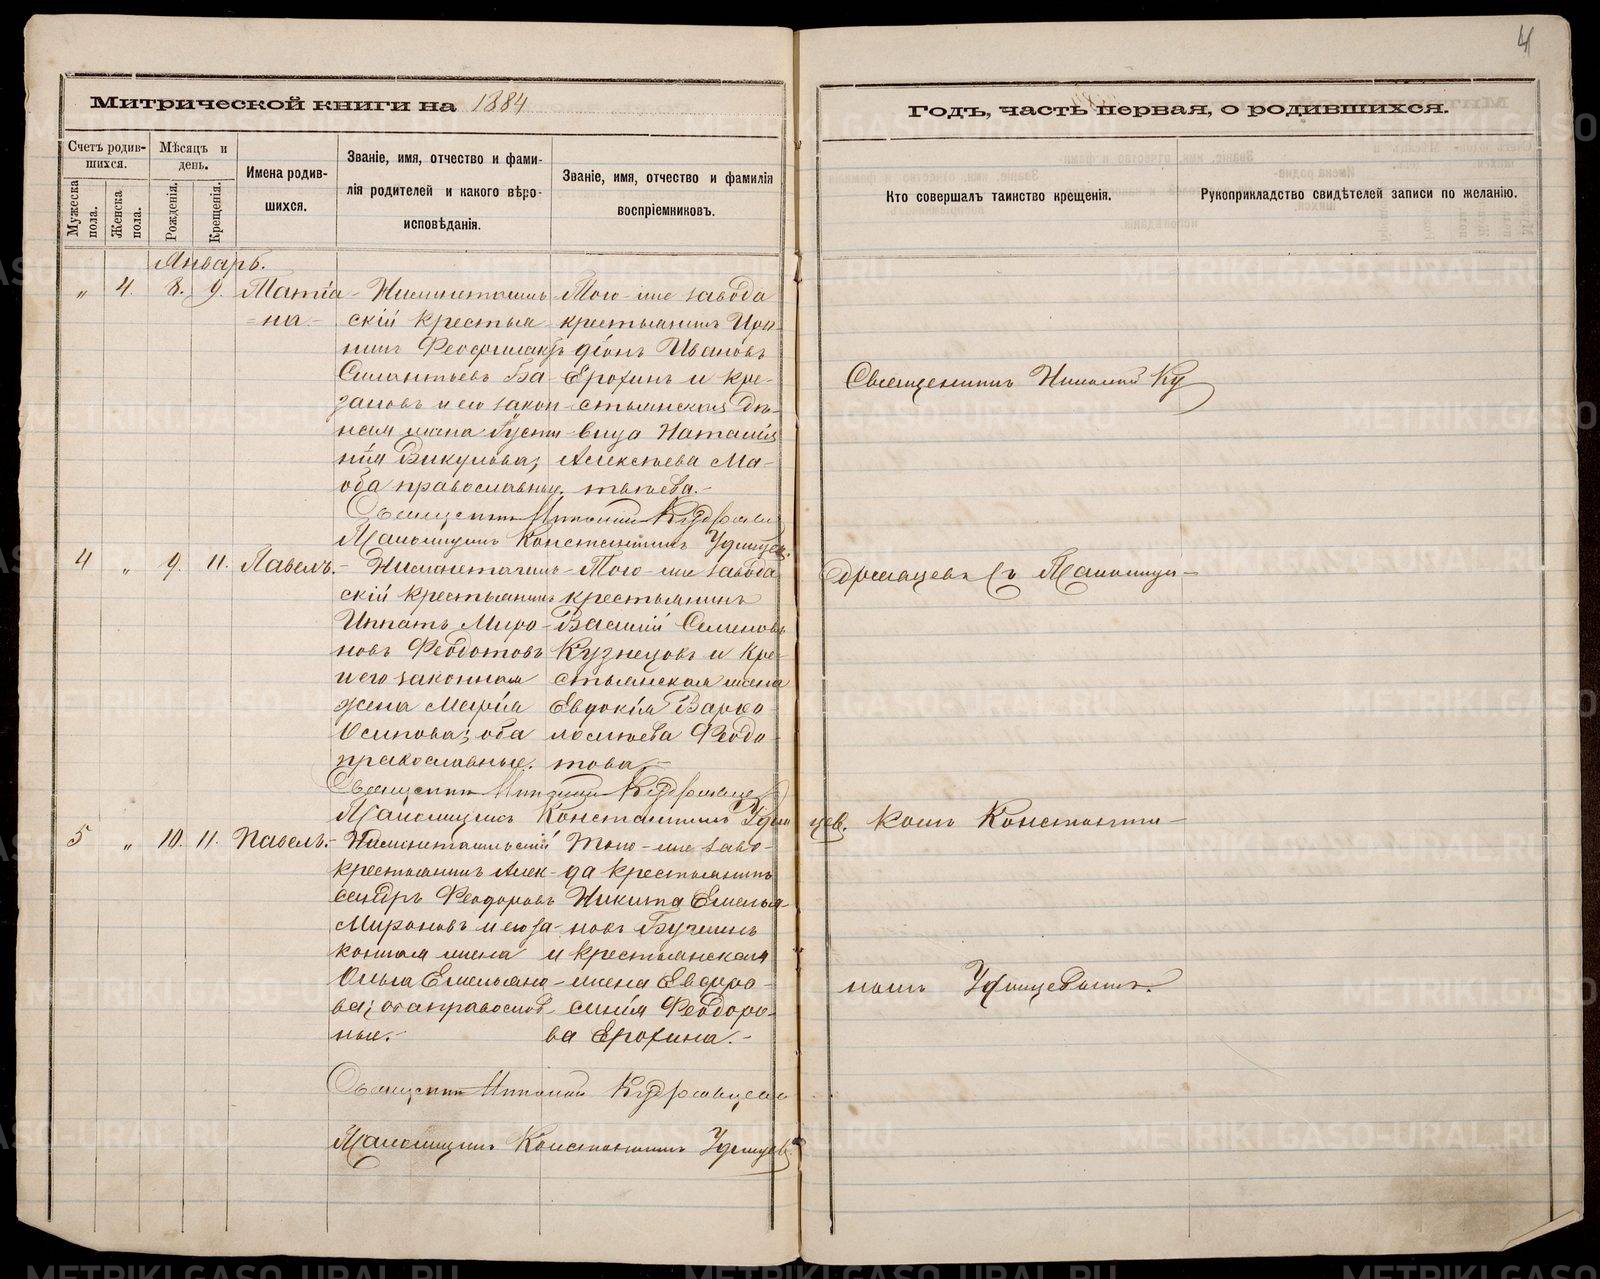 4
Митрической книги на 1884
Годъ, часть первая, о родившихся.
Счетъ родив-
шихся.
Мужеска пола.
Женска пола.
Мѣсяцъ и
день.
Рожденія.
Крещенія.
Имена родив-
шихся.
Званіе, имя, отчество и фами-
лія родителей и какого вѣро-
исповѣданія.
Званіе, имя, отчество и фамилія
воспріемниковъ.
Кто совершалъ таинство крещенія.
Рукоприкладство свидѣтелей записи по желанію.
Январь.
„ 4. 8. 9. Татіа-
=на=
Нижнетагиль-
скій крестья
нинъ Феофилактъ
Силантьевъ Ба-
зановъ и его закон
ная жена Густи
нія Викулова;
оба православные.
Того-же завода
крестьянинъ Иро
діонъ Ивановъ
Ерохинъ и кре-
стьянская дѣ-
вица Наталія
Алексѣева Ма-
твѣева.-
Священникъ Николай Ку
Священникъ Николай Кудрявцевъ
Псаломщикъ Константинъ Удинцевъ.
4 „ 9. 11. Павелъ.-
Нижнетагиль-
скій крестьянинъ
Ипатъ Миро-
новъ Феодотовъ
и его законная
жена Марія
Осипова; оба
православные.
Того-же завода
крестьянинъ
Василій Семеновъ
Кузнецовъ и кре-
стьянская жена
Евдокія Варѳо-
ломѣева Феодо-
това.
дрявцевъ съ Псаломщи-
Священникъ Николай Кудрявцевъ
Псаломщикъ Константинъ Удинцев.
5 „ 10. 11. Павелъ.-
Нижнетагильскій
крестьянинъ Алек-
сандръ Феодоровъ
Мироновъ и его за-
конная жена
Ольга Емельяно-
ва; оба православ-
ные.-
Того-же заво-
да крестьянинъ
Никита Емелья-
новъ Бучинъ
и крестьянская
жена Евфро-
синія Феодоро-
ва Ерохина.-
комъ Константи-
номъ Удинцевымъ.
Священникъ Николай Кудрявцевъ
Псаломщикъ Константинъ Удинцевъ
METRIKI.GASO-URAL.RU